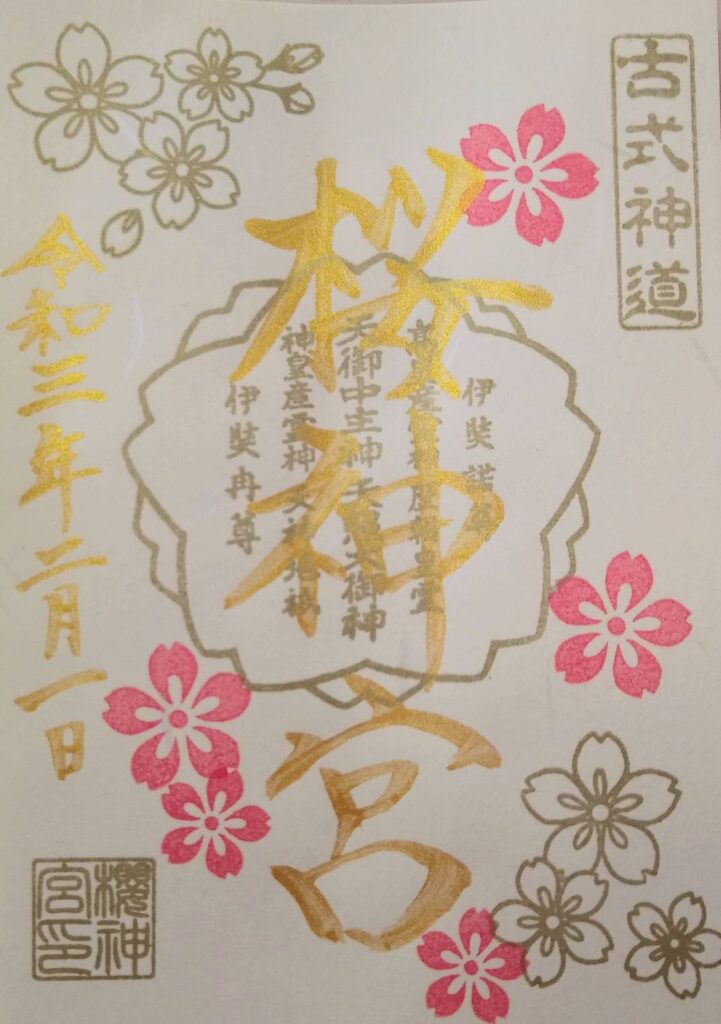 古式神道
桜神宮
伊奘諾尊
高皇産霊神 歴朝皇霊
天御中主神 天照大御神
神皇産霊神 天神地祇
伊奘冉尊
令和三年二月一日
櫻神
宮印